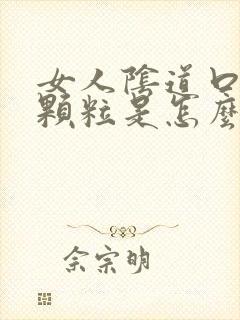 女人陰道口
顆粒是怎麼
佘宗明